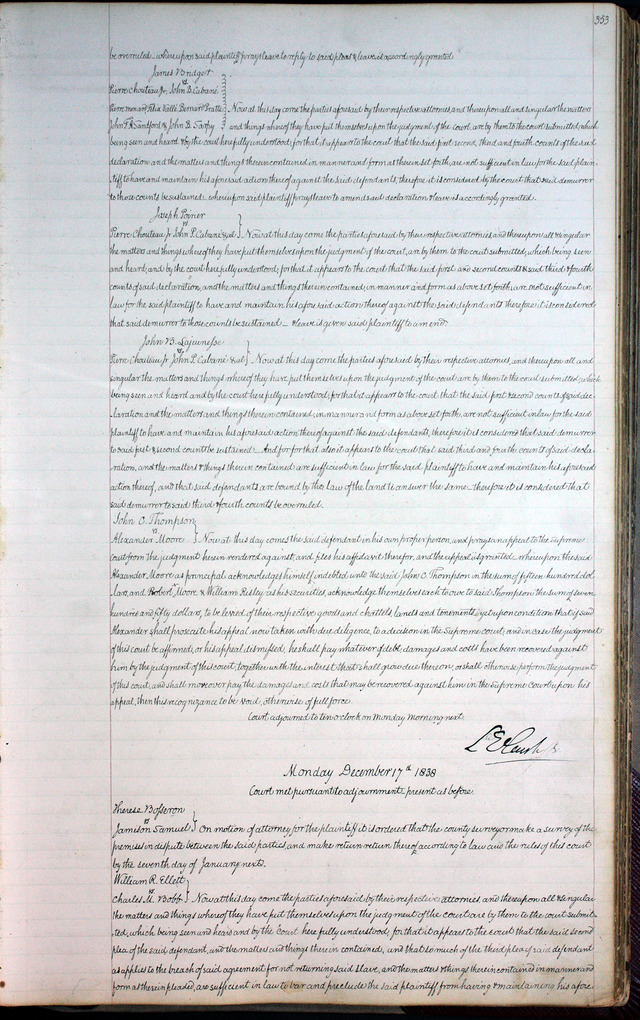 353
be overruled whereupon said plaintiff prays leave to reply to said pleas & leave is accordingly granted
James Bridger
vs
Pierre Chouteau Jr, John B. Cabané
Pierre menard, Felix Vallé Bernard Pratte } Now at this day come the parties aforesaid by their respective attornies, and thereupon all and singular the matters
John F. A. Sandford & John B. Sarpy } and things whereof they have put themselves upon the judgment of the court, are by them to the court submitted, which
being seen and heard & by the court here fully understood, for that it appears to the court that the said first, second, third and fourth counts of the said
declaration and the matters and things therein contained in manner and form as therein set forth, are not sufficient in law for the said plain-
tiff to have and maintain his aforesaid action thereof against the said defendants, therefore it is considered by the court that said demurrer
to those counts be sustained. whereupon said plaintiff prays leave to amend said declaration & leave is accordingly granted.
Joseph Poirier
vs
Pierre Chouteau Jr John P. Cabané & al } Now at this day come the parties aforesaid by their respective attornies, and thereupon all & singular
the matters and things whereof they have put themselves upon the judgment of the court, are by them to the court submitted, which being seen
and heard, and by the court here fully understood, for that it appears to the court that the said first and second counts & said third & fourth
counts of said declaration, and the matters and things therein contained, in manner and form as above set forth, are not sufficient in
law for the said plaintiff to have and maintain his aforesaid action thereof against the said defendants therefore it is considered
that said demurrer to those counts be sustained – & leave is given said plaintiff to amend.
John B. Lajeunesse
vs
Pierre Chouteau Jr John P. Cabané & al } Now at this day come the parties aforesaid by their respective attornies, and thereupon all and
singular the matters and things whereof they have put themselves upon the judgment of the court are by them to the court submitted which
being seen and heard and by the court here fully understood, for that it appears to the court that the said first & second counts of said dec-
laration and the matters and things therein contained, in manner and form as above set forth, are not sufficient in law for the said
plaintiff to have and maintain his aforesaid action thereof against the said defendants, therefore it is considered that said demurrer
to said first & second counts be sustained. And for that also it appears to the court that said third and fourth counts of said decla-
ration, and the matters & things therein contained are sufficient in law for the said plaintiff to have and maintain his aforesaid
action thereof, and that said defendants are bound by the law of the land to answer the same therefore it is considered that
said demurrer to said third & fourth counts be overruled.
John C. Thompson
vs
Alexander Moore } Now at this day comes the said defendant in his own proper person, and prays an appeal to the supreme
court from the judgment herein rendered against, and files his affidavit therefor, and the appeal is granted. whereupon the said
Alexander Moore as principal acknowledges himself indebted unto the said John C. Thompson in the sum of fifteen hundred dol-
lars, and Robert Moore & William Risley as his securities, acknowledge themselves each to owe to said Thompson the sum of seven
hundred and fifty dollars, to be levied of their respective goods and chattels, lands and tenements, yet upon condition that if said
Alexander shall prosecute his appeal now taken with due diligence, to a decision in the supreme court, and in case the judgment
of this court be affirmed, or his appeal dismissed, he shall pay whatever of debt, damages and costs have been recovered against
him by the judgment of this court, together with the interest that shall grow due thereon, or shall otherwise perform the judgment
of this court, and shall moreover pay the damages and costs that may be recovered against him in the supreme court upon his
appeal, then this recognizance to be void, otherwise of full force.
Court adjourned to ten o'clock on Monday morning next.
Monday December 17th 1838
Court met pursuant to adjournment & present as before.
Therese Bosseron
vs
Jamison Samuel } On motion of attorney for the plaintiff it is ordered that the county surveyor make a survey of the
premises in dispute between the said parties, and make return return thereof according to law and the rules of this court
by the seventh day of January next.
William R. Ellett
vs
Charles M. Bobb } Now at this day come the parties aforesaid by their respective attornies, and thereupon all & singular
the matters and things whereof they have put themselves upon the judgment of the court are by them to the court submit-
ted, which being seen and heard and by the court here fully understood, for that it appears to the court that the said second
plea of the said defendant, and the matters and things therein contained, and that so much of the third plea of said defendant
as applies to the breach of said agreement for not returning said slave, and the matters & things therein contained in manner and
form as therein pleaded, are sufficient in law to bar and preclude the said plaintiff from having & maintaining his afore-